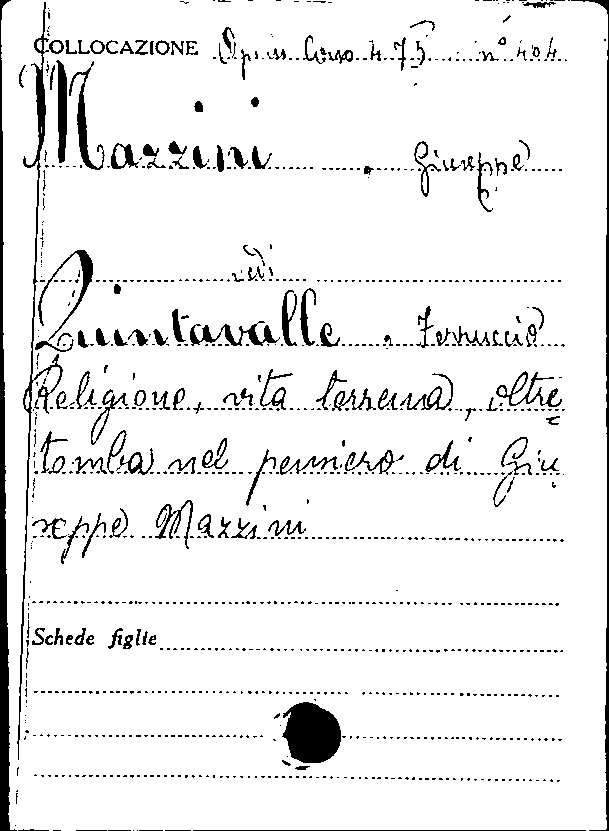 COLLOCAZIONE Opusc Corso 475 n° 404
Mazzini . Giuseppe
vedi
Quintavalle . Ferruccio
Religione, vita terrena, oltre=
tomba nel pensiero di Giu=
seppe Mazzini
Schede figlie